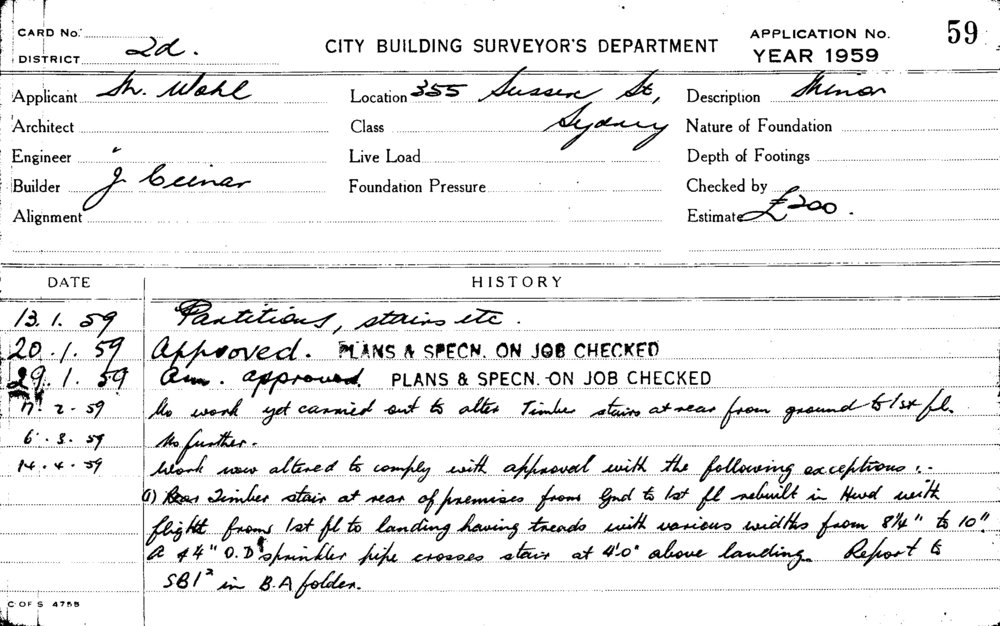 CARD No.
CITY BUILDING SURVEYOR'S DEPARTMENT
APPLICATION No. 59
DISTRICT 2d.
YEAR 1959
Applicant M. Wohl
Location 355 Sussex St,
Description Minor
Architect
Class Sydney
Nature of Foundation
Engineer
Live Load
Depth of Footings
Builder J.
Foundation Pressure
Checked by
Alignment
Estimate £200.
DATE HISTORY
13.1.59 Partitions, stairs etc.
20.1.59 Approved. PLANS & SPECN. ON JOB CHECKED
29.1.59 Am. approved. PLANS & SPECN. ON JOB CHECKED
17.2.59 No work yet carried out to alter Timber stairs at rear from ground to 1st fl.
6.3.59 No further.
14.4.59 Work now altered to comply with approval with the following exceptions:-
(1) Timber stair at rear of premises from Gnd to 1st fl rebuilt in Hwd with
flight from 1st fl to landing having treads with various widths from 8¼" to 10".
A 4" O.D sprinkler pipe crosses stair at 4'0" above landing. Report to
SB1² in B.A folder.
C OF S 4755